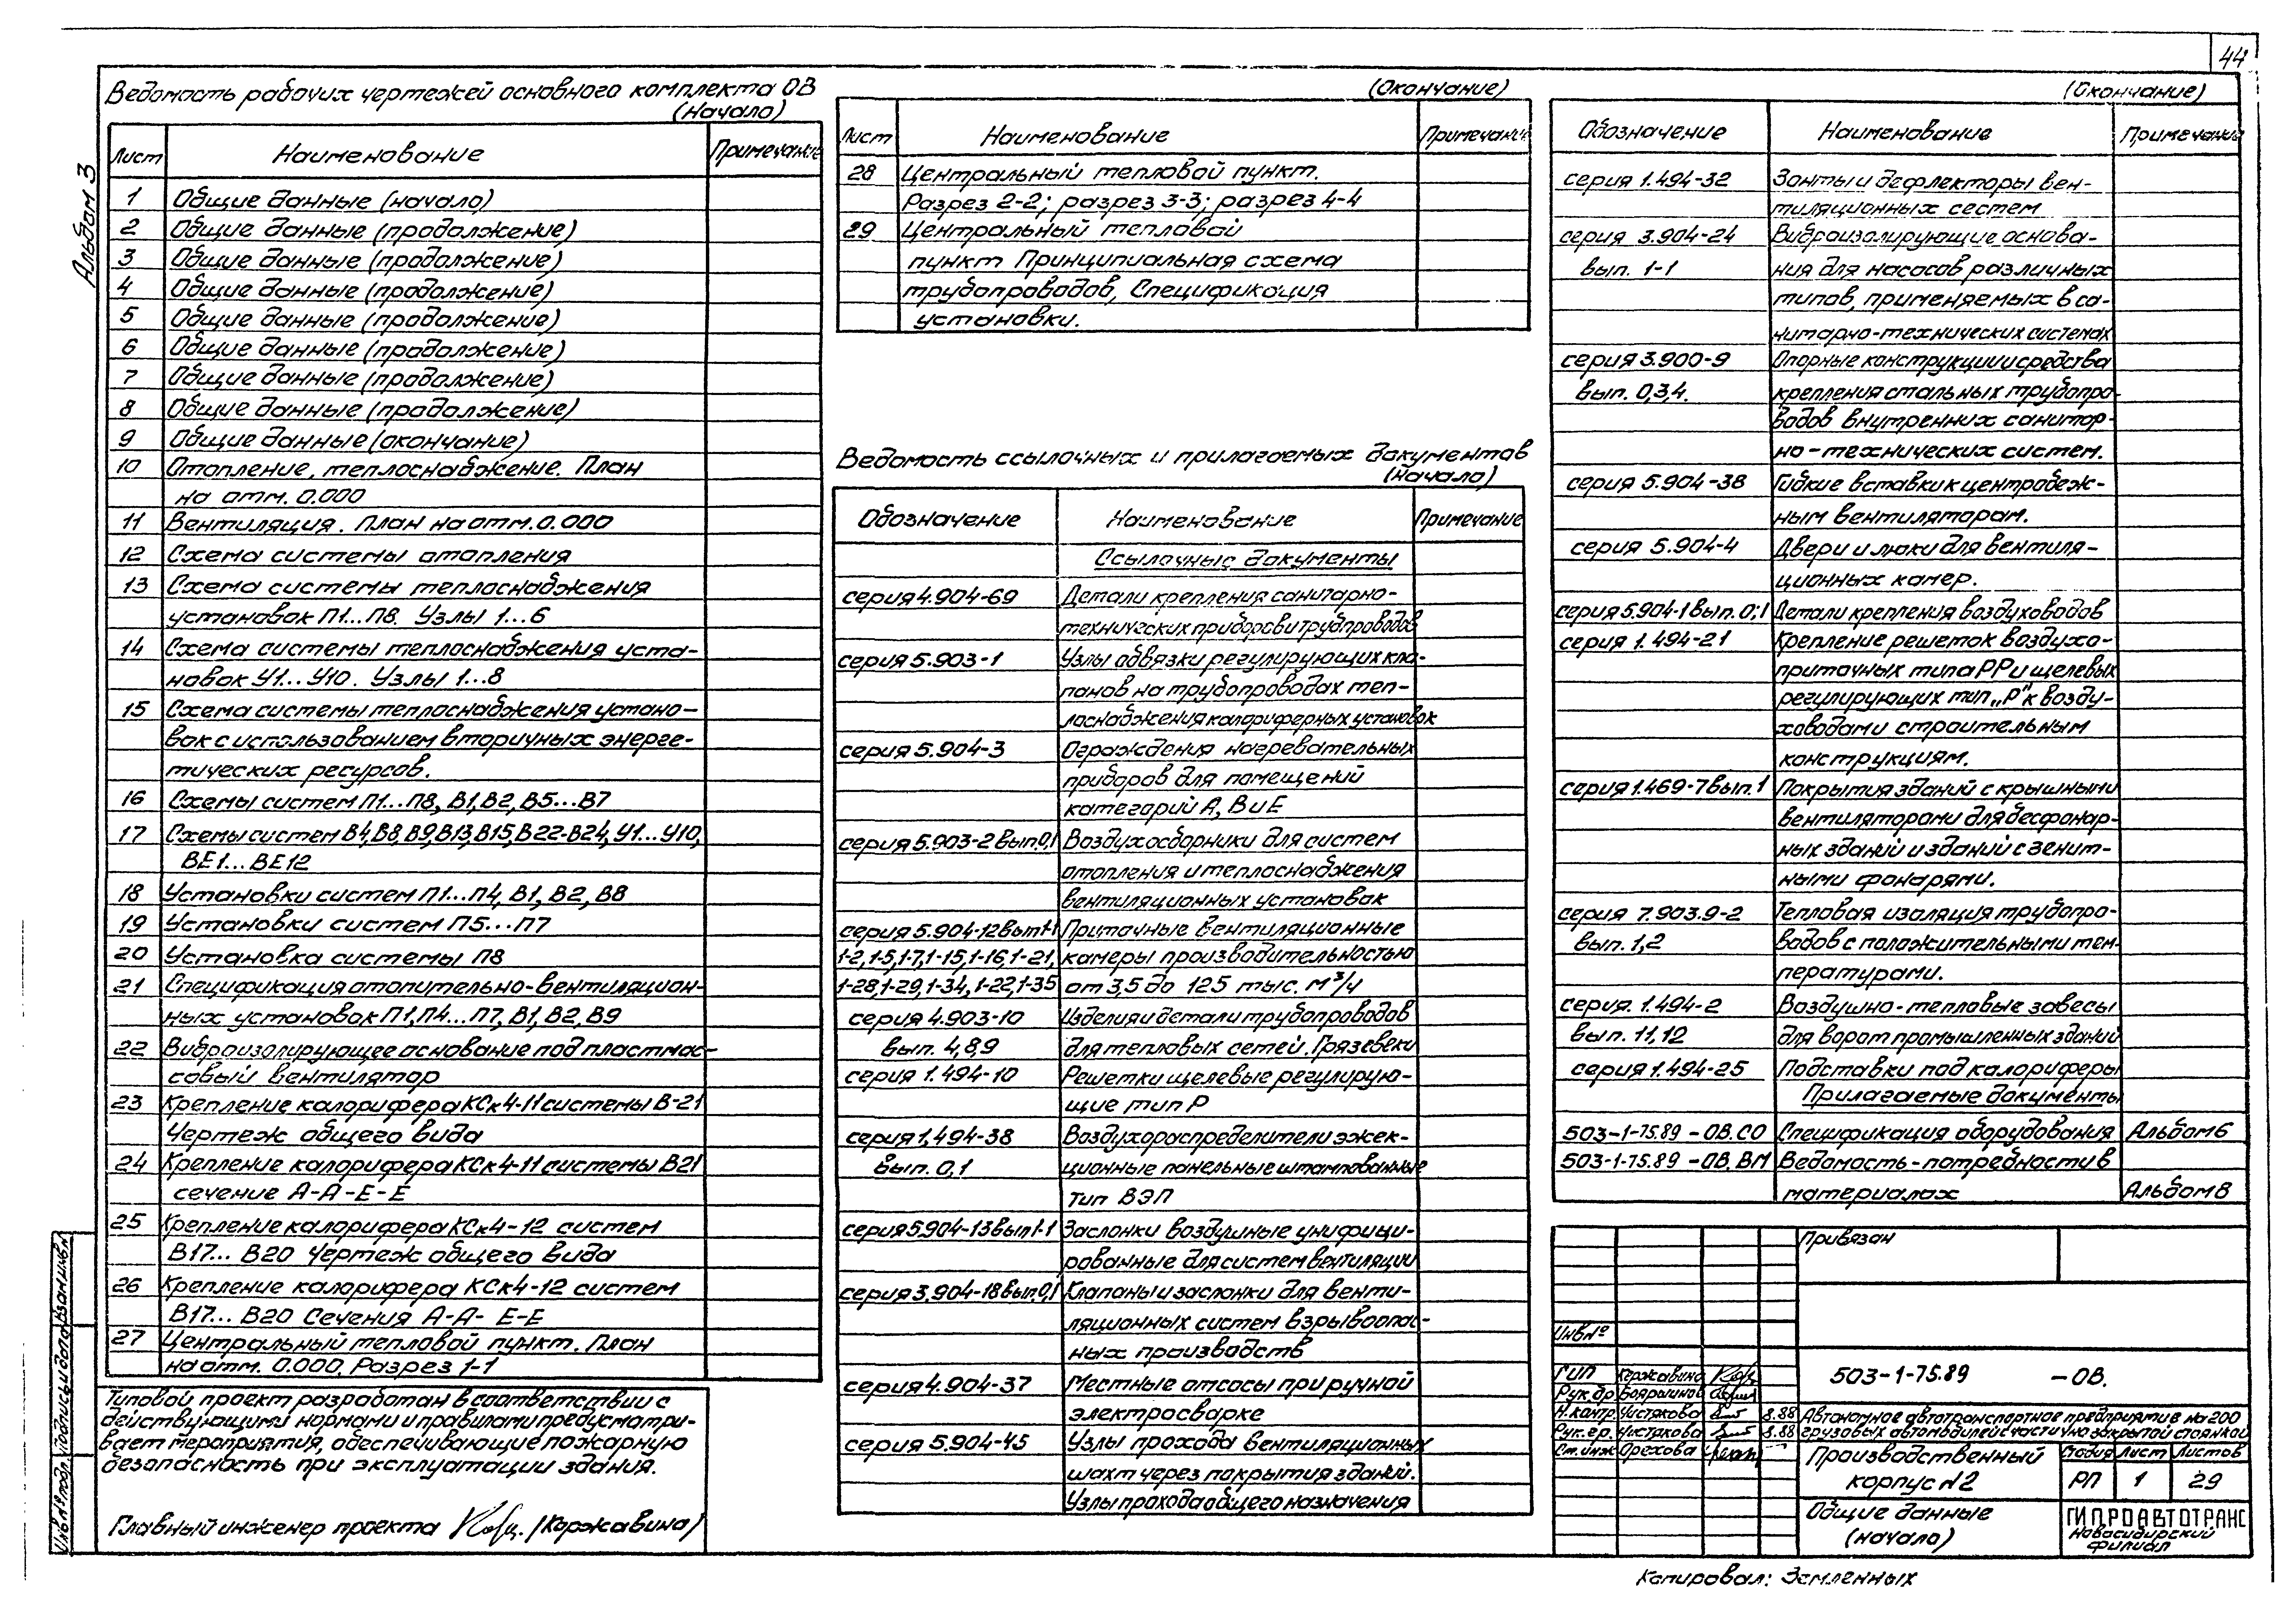 44
Альбом 3
Ведомость рабочих чертежей основного комплекта ОВ
(Начало)
Лист Наименование Примечание
1 Общие данные (начало)
2 Общие данные (продолжение)
3 Общие данные (продолжение)
4 Общие данные (продолжение)
5 Общие данные (продолжение)
6 Общие данные (продолжение)
7 Общие данные (продолжение)
8 Общие данные (продолжение)
9 Общие данные (окончание)
10 Отопление, теплоснабжение. План
на отм. 0.000
11 Вентиляция. План на отм. 0.000
12 Схема системы отопления
13 Схема системы теплоснабжения
установок П1...П8. Узлы 1...6
14 Схема системы теплоснабжения уста-
новок У1...У10. Узлы 1...8
15 Схема системы теплоснабжения устано-
вок с использованием вторичных энерге-
тических ресурсов.
16 Схемы систем П1...П8, В1, В2, В5...В7
17 Схемы систем В4, В8, В9, В13, В15, В22-В24, У1...У10,
ВЕ1...ВЕ12
18 Установки систем П1...П4, В1, В2, В8
19 Установки систем П5...П7
20 Установка системы П8
21 Спецификация отопительно-вентиляцион-
ных установок П1, П4...П7, В1, В2, В9
22 Виброизолирующее основание под пластмас-
совый вентилятор
23 Крепление калорифера КСк4-11 системы В-21
Чертеж общего вида
24 Крепление калорифера КСк4-11 системы В21
сечение А-А-Е-Е
25 Крепление калорифера КСк4-12 систем
В17...В20 Чертеж общего вида
26 Крепление калорифера КСк4-12 систем
В17...В20 Сечения А-А- Е-Е
27 Центральный тепловой пункт. План
на отм. 0.000. Разрез 1-1
Типовой проект разработан в соответствии с
действующими нормами и правилами предусматри-
вает мероприятия, обеспечивающие пожарную
безопасность при эксплуатации здания.
Главный инженер проекта /Коржавина/
(Окончание)
Лист Наименование Примечание
28 Центральный тепловой пункт.
Разрез 2-2; разрез 3-3; разрез 4-4
29 Центральный тепловой
пункт Принципиальная схема
трубопроводов, Спецификация
установки.
Ведомость ссылочных и прилагаемых документов
(Начало)
Обозначение Наименование Примечание
Ссылочные документы
серия 4.904-69 Детали крепления санитарно-
технических приборов и трубопроводов
серия 5.903-1 Узлы обвязки регулирующих кла-
панов на трубопроводах теп-
лоснабжения калориферных установок
серия 5.904-3 Ограждения нагревательных
приборов для помещений
категорий А, В и Е
серия 5.903-2 вып.0,1 Воздухосборники для систем
отопления и теплоснабжения
вентиляционных установок
серия 5.904-12 вып.1-1 Приточные вентиляционные
1-2, 1-5, 1-7, 1-15, 1-16, 1-21, камеры производительностью
1-28, 1-29, 1-34, 1-22, 1-35 от 3,5 до 125 тыс. м³/ч
серия 4.903-10 Изделия и детали трубопроводов
вып. 4,8,9 для тепловых сетей. Грязевеки
серия 1.494-10 Решетки щелевые регулирую-
щие тип Р
серия 1.494-38 Воздухораспределители эжек-
вып. 0,1 ционные панельные штампованные
тип ВЭП
серия 5.904-13 вып 1-1 Заслонки воздушные унифици-
рованные для систем вентиляции
серия 3.904-18 вып.0,1 Клапаны и заслонки для венти-
ляционных систем взрывоопас-
ных производств
серия 4.904-37 Местные отсосы при ручной
электросварке
серия 5.904-45 Узлы прохода вентиляционных
шахт через покрытия зданий.
Узлы прохода общего назначения
(Окончание)
Обозначение Наименование Примечание
серия 1.494-32 Зонты и дефлекторы вен-
тиляционных сестем
серия 3.904-24 Виброизолирующие основа-
вып. 1-1 ния для насосов различных
типов, применяемых в са-
нитарно-технических системах
серия 3.900-9 Опорные конструкции и средства
вып. 0,3,4. крепления стальных трубопро-
водов внутренних санитар-
но-технических систем.
серия 5.904-38 Гибкие вставки к центробеж-
ным вентиляторам.
серия 5.904-4 Двери и люки для вентиля-
ционных камер.
серия 5.904-1 вып. 0;1 Детали крепления воздуховодов
серия 1.494-21 Крепление решеток воздухо-
приточных типа РР и щелевых
регулирующих тип „Р" к возду-
ховодам и строительным
конструкциям.
серия 1.469-7 вып.1 Покрытия зданий с крышными
вентиляторами для бесфонар-
ных зданий и зданий с зенит-
ными фонарями.
серия 7.903.9-2 Тепловая изоляция трубопро-
вып. 1,2 водов с положительными тем-
пературами.
серия. 1.494-2 Воздушно-тепловые завесы
вып. 11,12 для ворот промышленных зданий
серия 1.494-25 Подставки под калориферы
Прилагаемые документы
503-1-75.89 -ОВ.СО Спецификация оборудования Альбом 6
503-1-75.89 -ОВ.ВМ Ведомость-потребности в
материалах Альбом 8
Привязан
Инв№
ГИП Коржавина
Рук.бр Бояршинов
Н.контр. Чистякова 8.88
Рук.гр. Чистякова 8.88
Ст.инж Орехова
503-1-75.89 -ОВ.
Автономное автотранспортное предприятие на 200
грузовых автомобилей с частично закрытой стоянкой
Производственный
корпус №2
Стадия Лист Листов
РП 1 29
Общие данные
(начало)
ГИПРОАВТОТРАНС
Новосибирский
филиал
Копировал: Земленных
Инв№ подл. Подпись и дата Взам.инв.№